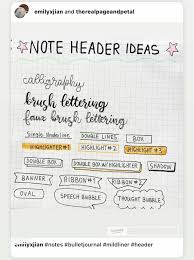 emilyxjian and therealpageandpetal
NOTE HEADER IDEAS
calligraphy
brush lettering
faux brush lettering
Single Underline DOUBLE LINES BOX
HIGHLIGHTER #1 HIGHLIGHT #2 HIGHLIGHT #3
DOUBLE BOX DOUBLE BOX W/ HIGHLIGHTER SHADOW
BANNER RIBBON #1 RIBBON #2
OVAL SPEECH BUBBLE THOUGHT BUBBLE
emilyxjian #notes #bulletjournal #mildliner #header